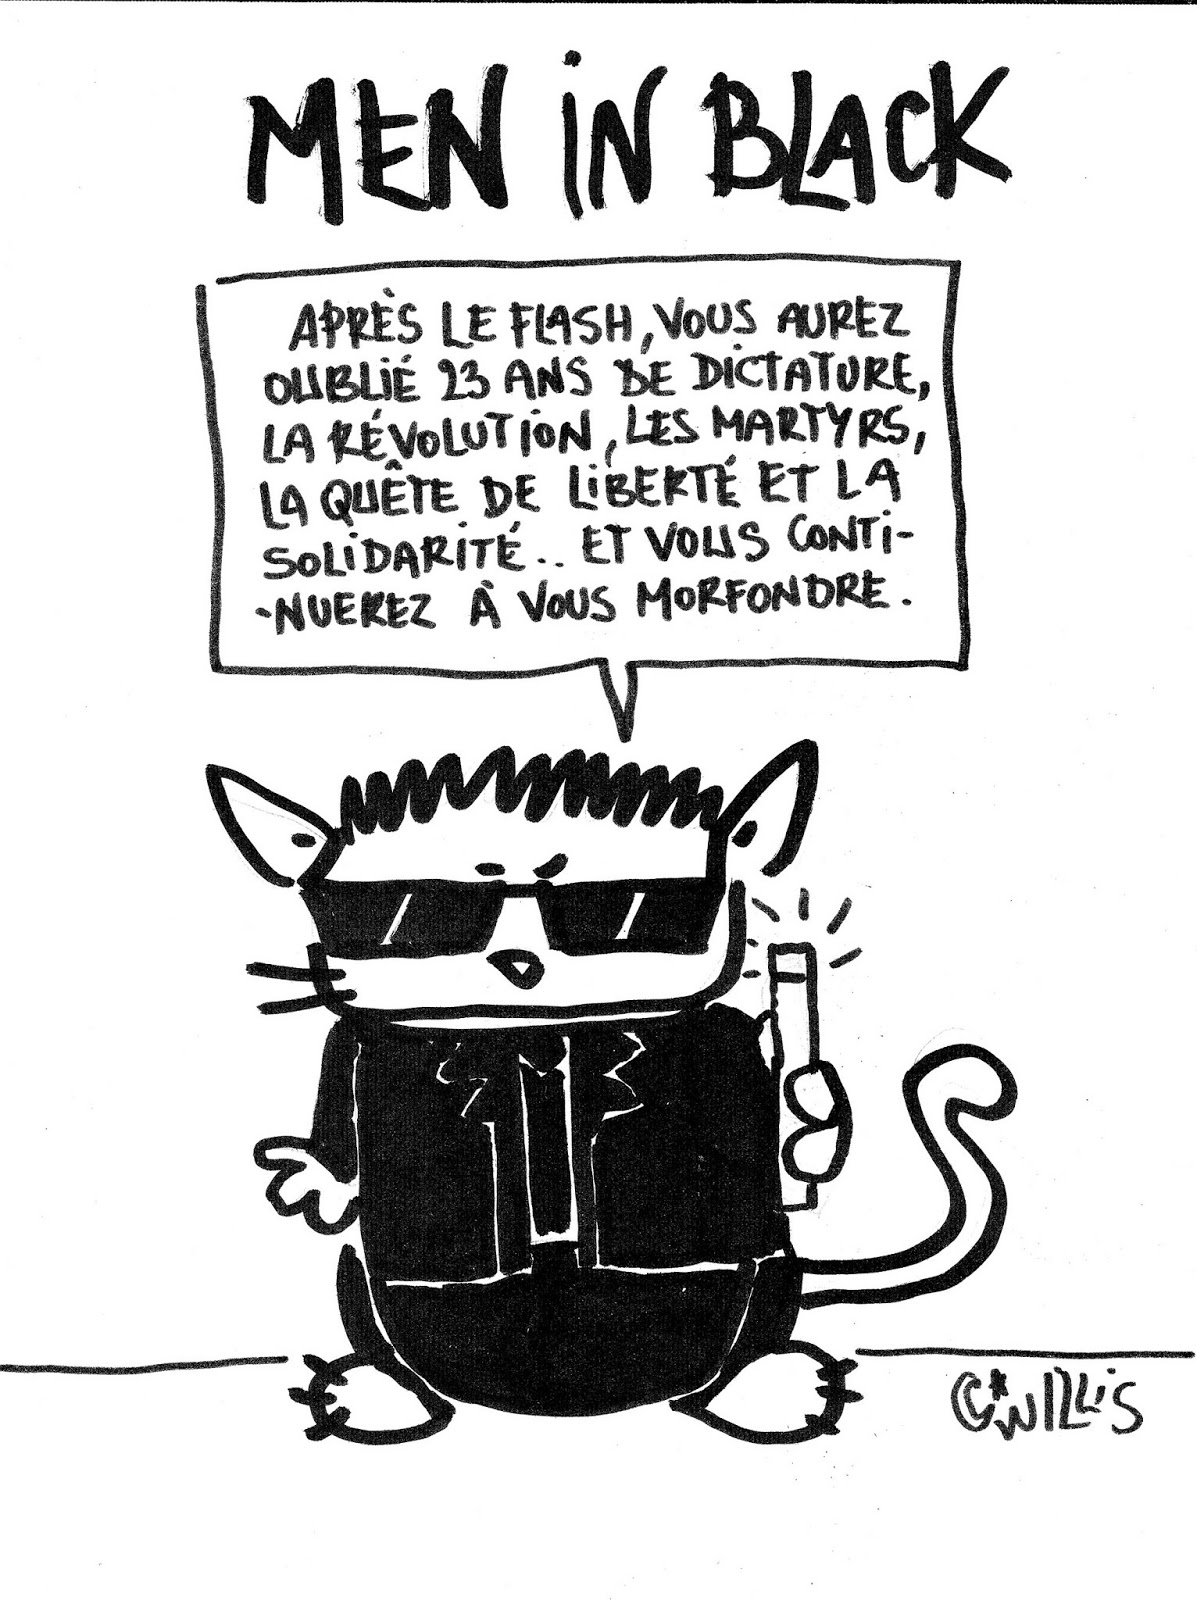 MEN iN BLACK
APRÈS LE FLASH, VOUS AUREZ
OUBLIÉ 23 ANS DE DICTATURE,
LA RÉVOLUTION, LES MARTYRS,
LA QUÊTE DE LIBERTÉ ET LA
SOLIDARITÉ.. ET VOUS CONTI-
-NUEREZ À VOUS MORFONDRE.
WILLIS